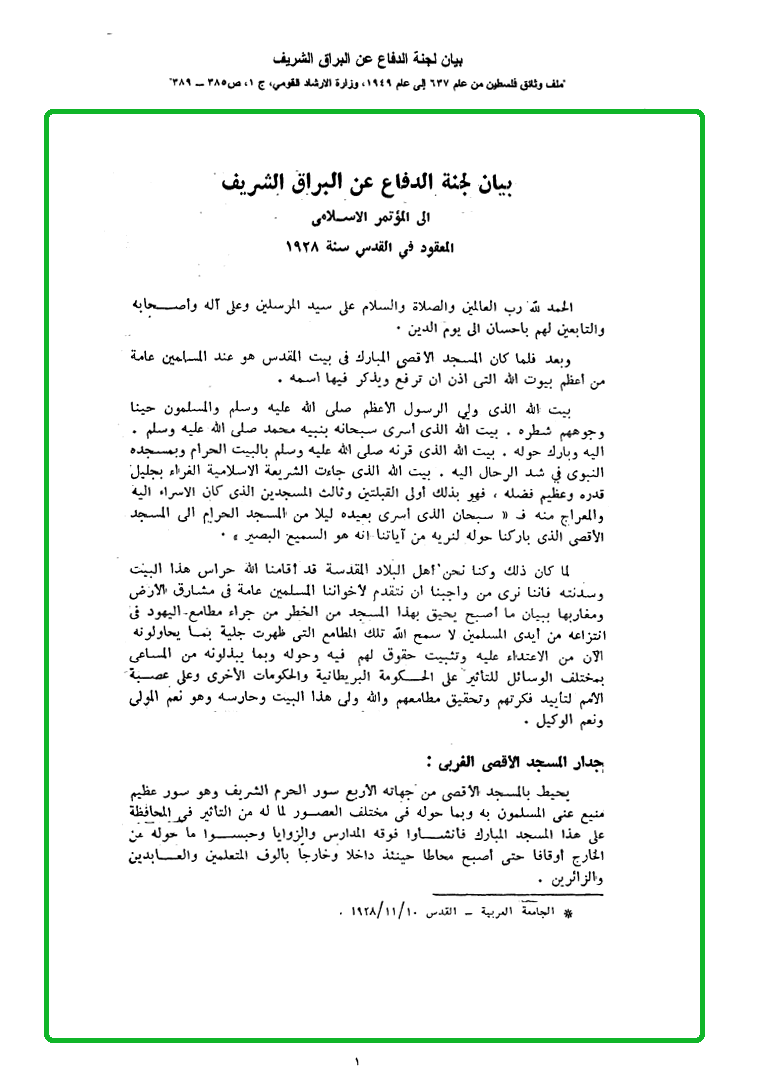 بيان لجنة الدفاع عن البراق الشريف
"ملف وثائق فلسطين من عام ٦٣٧ إلى عام ١٩٤٩، وزارة الارشاد القومي، ج ١، ص٣٨٥ ــ ٣٨٩"
بيان لجنة الدفاع عن البراق الشريف
الى المؤتمر الاسـلامى
المعقود في القدس سنة ١٩٢٨
الحمد لله رب العالمين والصلاة والسلام على سيد المرسلين وعلى آله وأصـحابه
والتابعين لهم باحسان الى يوم الدين .
وبعد فلما كان المسجد الأقصى المبارك فى بيت المقدس هو عند المسلمين عامة
من أعظم بيوت الله التى اذن ان ترفع ويذكر فيها اسمه .
بيت الله الذى ولي الرسول الأعظم صلى الله عليه وسلم والمسلمون حينا
وجوههم شطره . بيت الله الذى أسرى سبحانه بنبيه محمد صلى الله عليه وسلم .
اليه وبارك حوله . بيت الله الذى قرنه صلى الله عليه وسلم بالبيت الحرام وبمسجده
النبوى في شد الرحال اليه . بيت الله الذى جاءت الشريعة الاسلامية الغراء بجليل
قدره وعظيم فضله ، فهو بذلك أولى القبلتين وثالث المسجدين الذى كان الاسراء اليه
والمعراج منه فـ « سبحان الذى أسرى بعبده ليلا من المسجد الحرام الى المسجد
الأقصى الذى باركنا حوله لنريه من آياتنا انه هو السميع البصير » .
لما كان ذلك وكنا نحن أهل البلاد المقدسة قد أقامنا الله حراس هذا البيت
وسدنته فاننا نرى من واجبنا ان نتقدم لأخواننا المسلمين عامة فى مشارق الأرض
ومغاربها ببيان ما أصبح يحيق بهذا المسجد من الخطر من جراء مطامع اليهود فى
انتزاعه من أيدى المسلمين لا سمح الله تلك المطامع التى ظهرت جلية بما يحاولونه
الآن من الاعتداء عليه وتثبيت حقوق لهم فيه وحوله وبما يبذلونه من المساعى
بمختلف الوسائل للتأثير على الحـكومة البريطانية والحكومات الأخرى وعلى عصـبة
الأمم لتأييد فكرتهم وتحقيق مطامعهم والله ولى هذا البيت وحارسه وهو نعم المولى
ونعم الوكيل .
جدار المسجد الأقصى الغربى :
يحيط بالمسجد الأقصى من جهاته الأربع سور الحرم الشريف وهو سور عظيم
منيع عنى المسلمون به وبما حوله فى مختلف العصـور لما له من التأثير فى المحافظة
على هذا المسجد المبارك فأنشـاوا فوقه المدارس والزوايا وحبسـوا ما حوله من
الخارج أوقافا حتى أصبح محاطا حينئذ داخلا وخارجاً بألوف المتعلمين والعـابدين
والزائرين .
* الجامعة العربية ــ القدس ١٩٢٨/١١/١٠ .
١